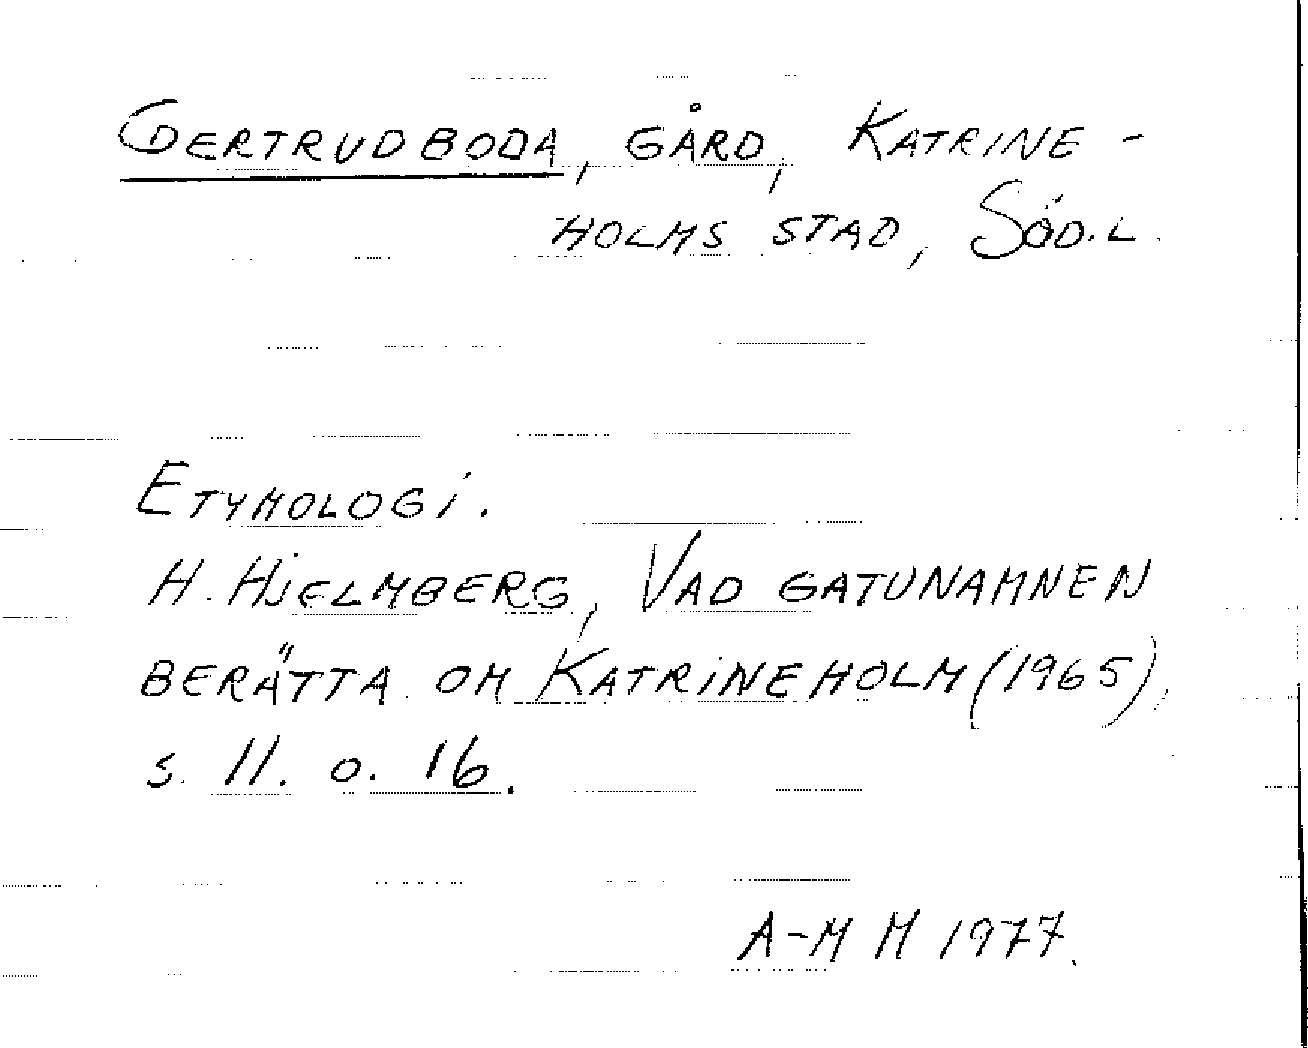 GERTRUDBODA, GÅRD, KATRINE-
HOLMS STAD, SÖD.L.
ETYMOLOGI.
H. HJELMBERG, VAD GATUNAMNEN
BERÄTTA OM KATRINEHOLM (1965),
s. 11. o. 16.
A-M M 1977.